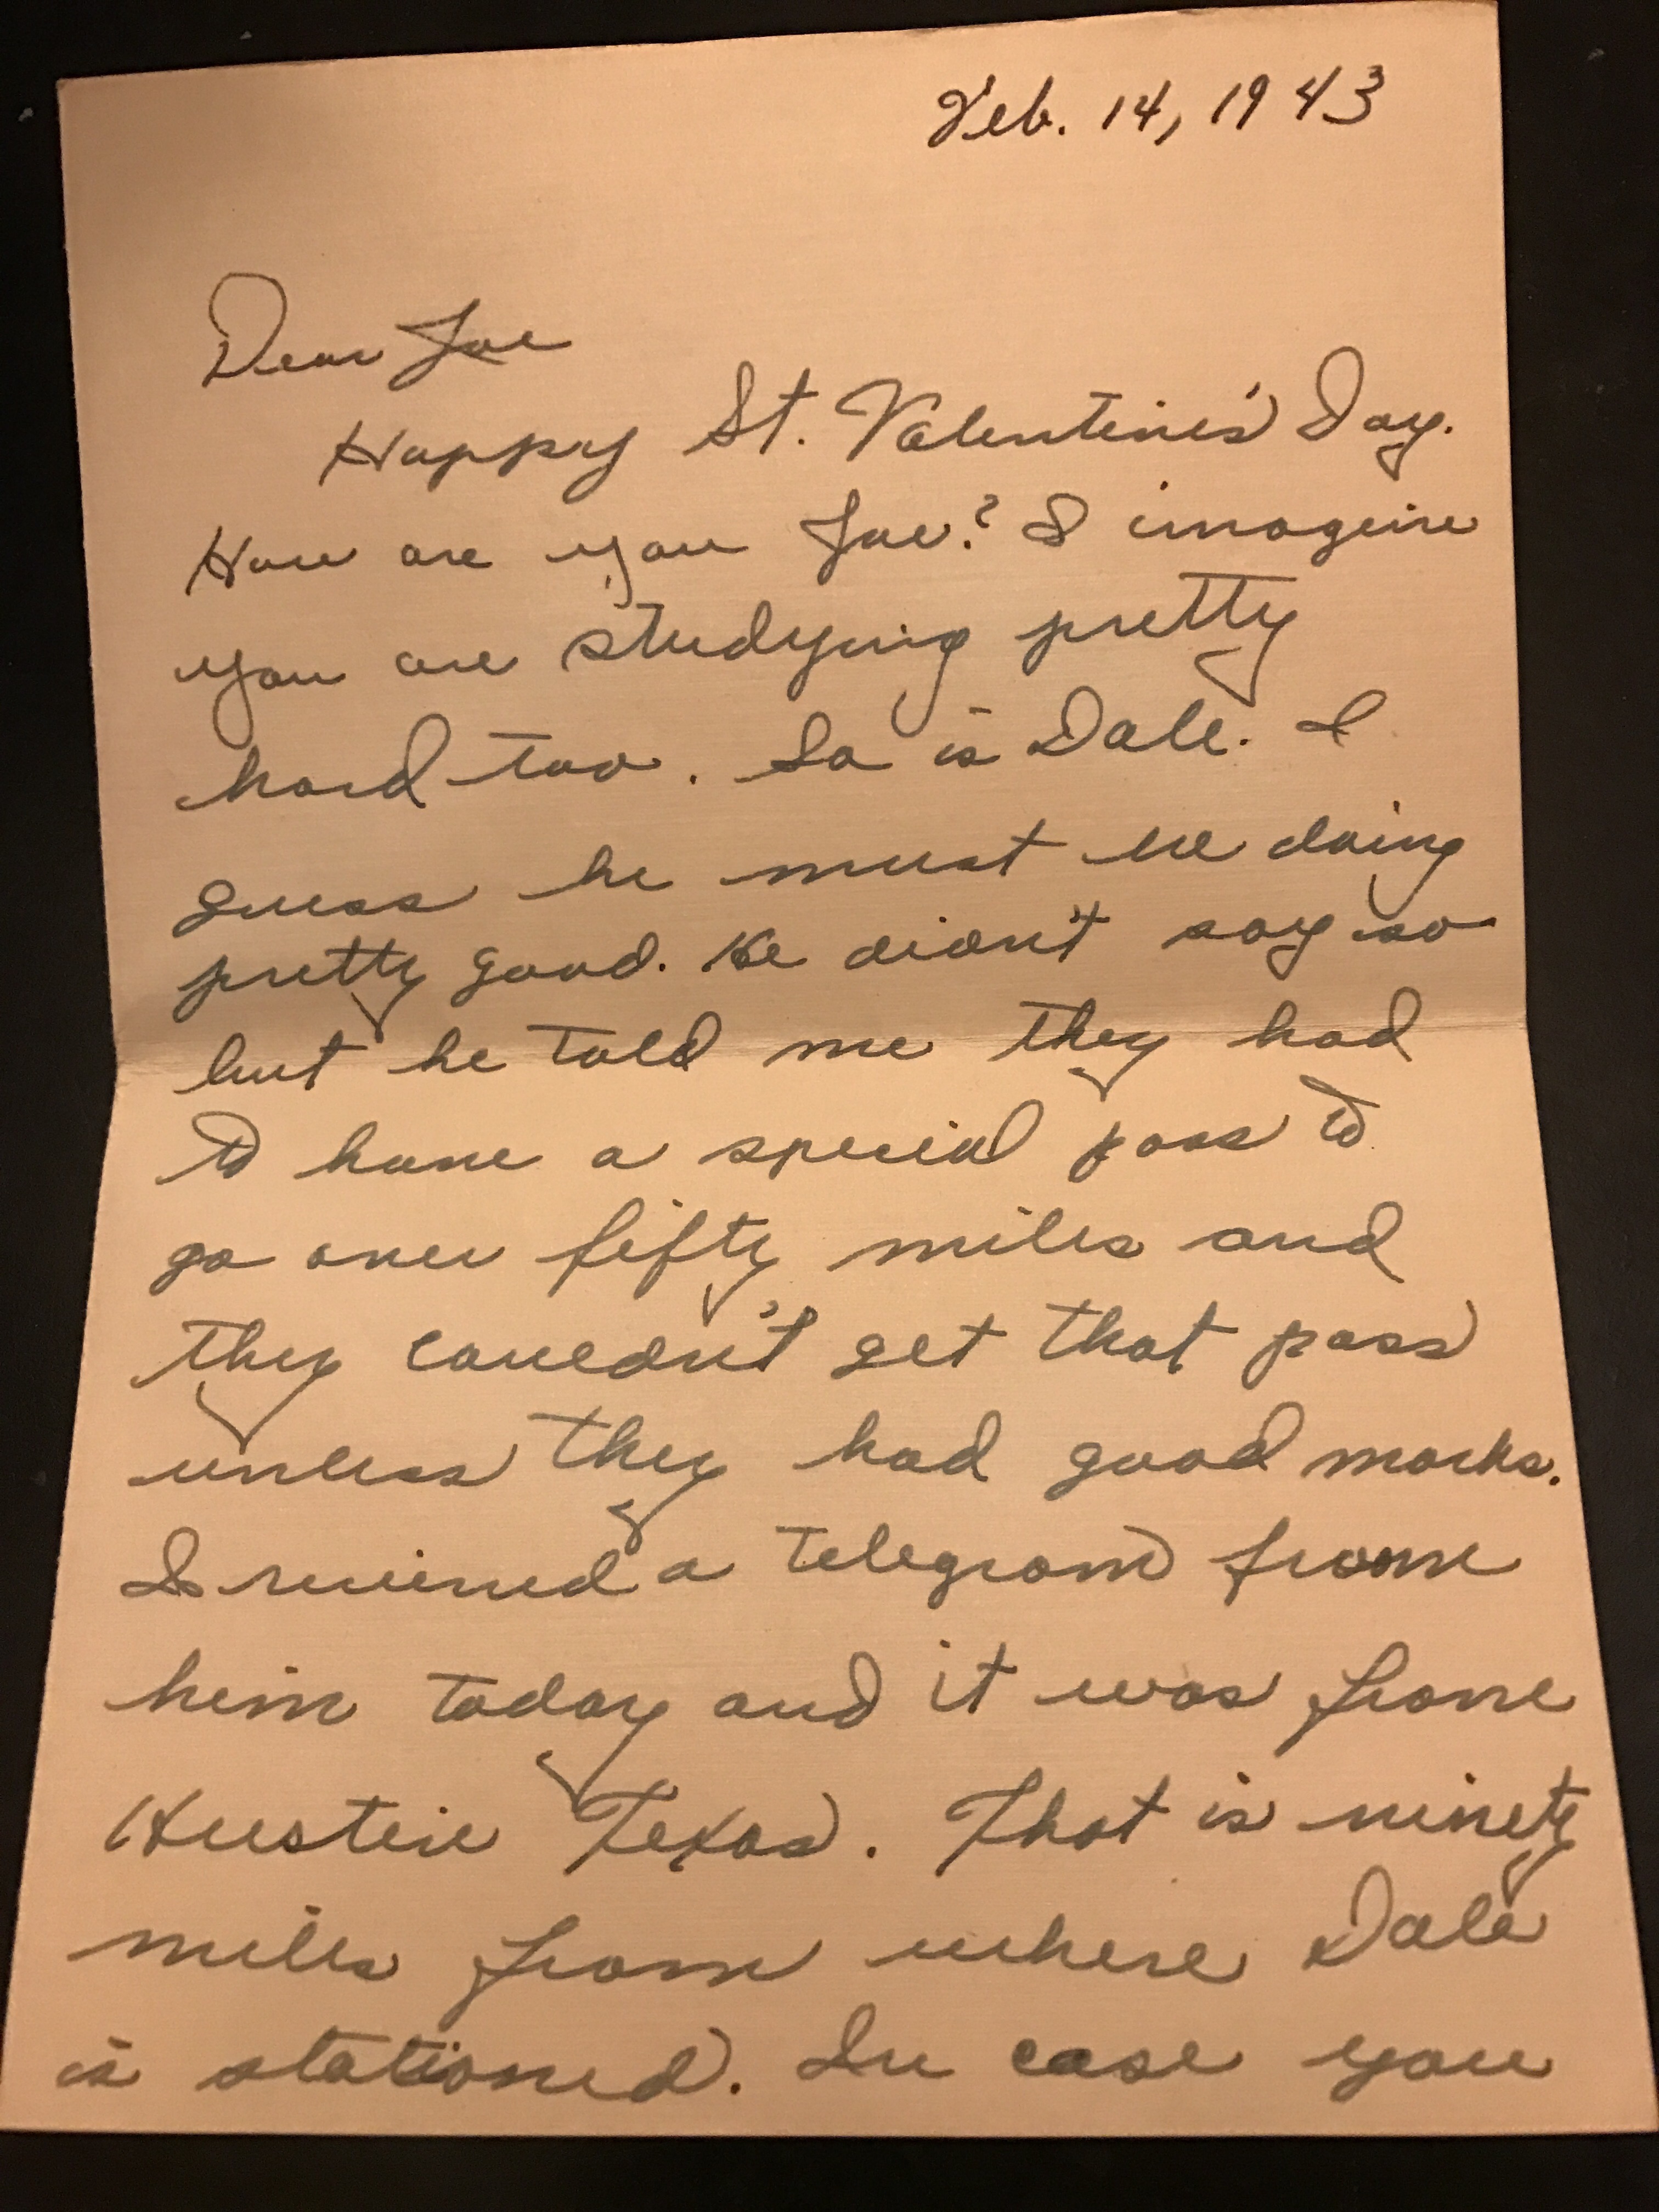 Feb. 14, 1943
Dear Joe
Happy St. Valentine's Day.
How are you Joe? I imagine
you are studying pretty
hard too. So is Dale. I
guess he must be doing
pretty good. He didn't say so
but he told me they had
to have a special pass to
go over fifty miles and
they couldn't get that pass
unless they had good marks.
I received a telegram from
him today and it was from
Hustin Texas. That is ninety
miles from where Dale
is stationed. In case you